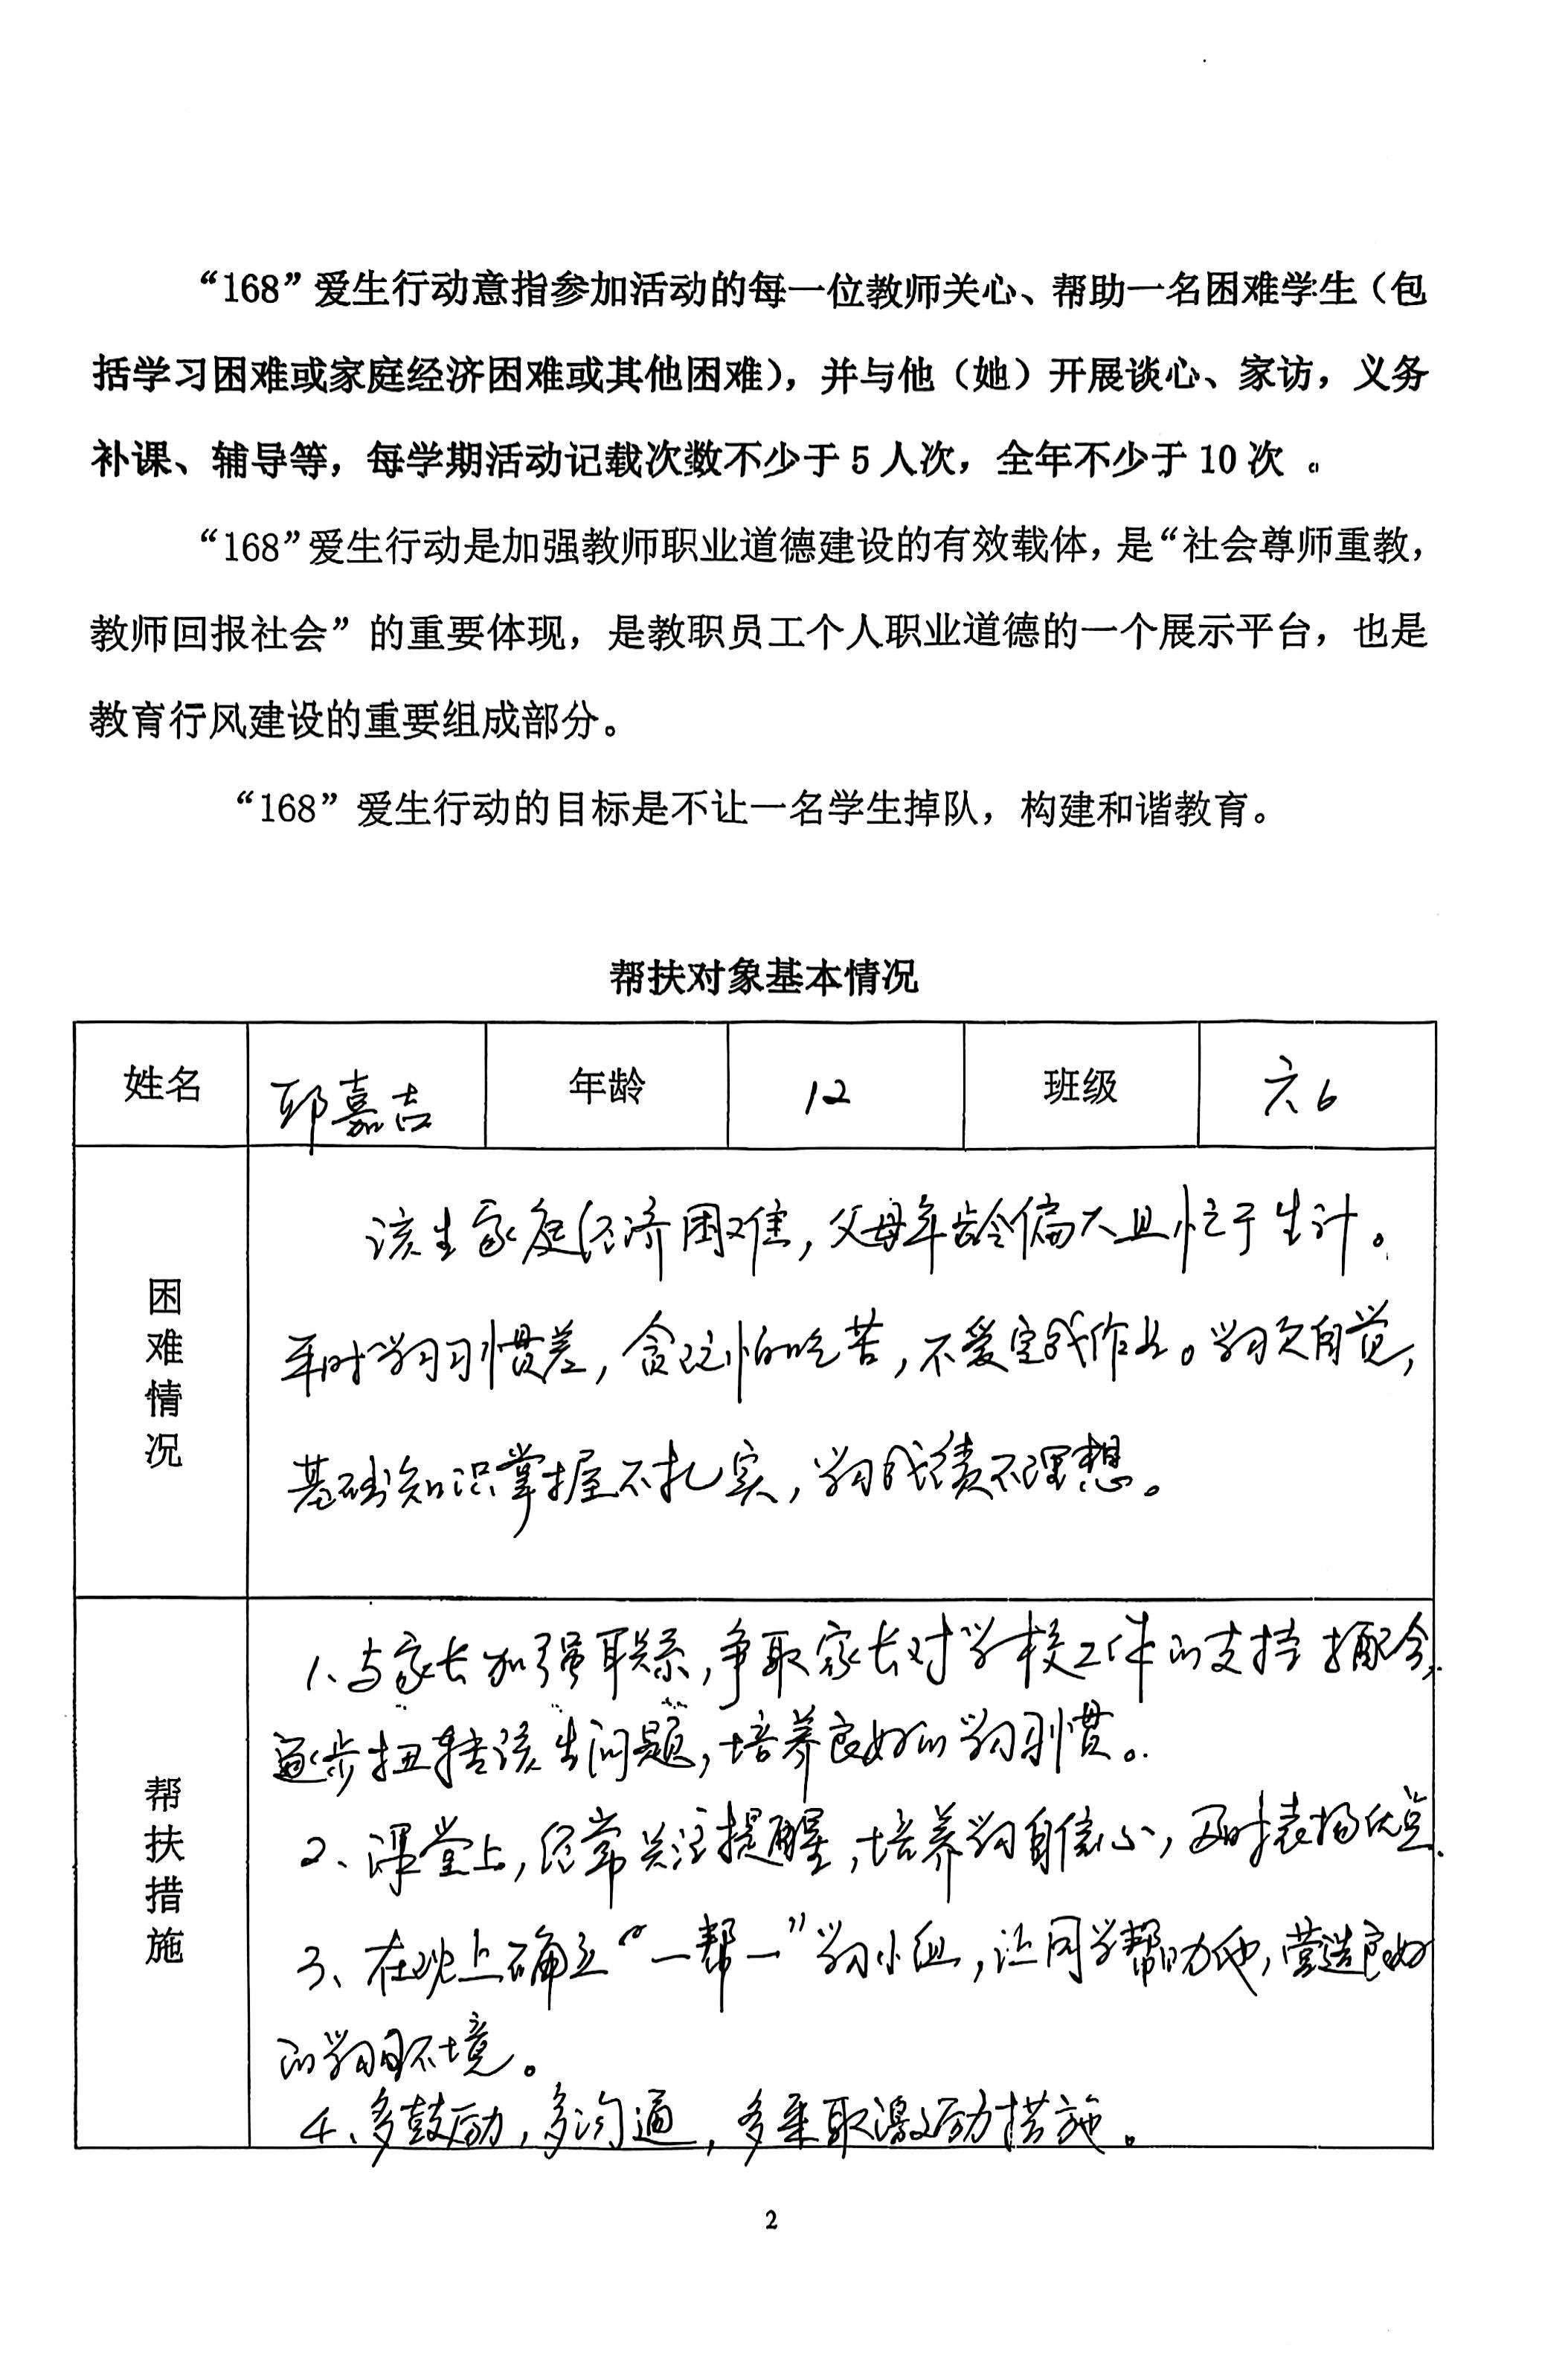 “168”爱生行动意指参加活动的每一位教师关心、帮助一名困难学生（包
括学习困难或家庭经济困难或其他困难），并与他（她）开展谈心、家访，义务
补课、辅导等，每学期活动记载次数不少于 5 人次，全年不少于 10 次 。
“168”爱生行动是加强教师职业道德建设的有效载体，是“社会尊师重教，
教师回报社会”的重要体现，是教职员工个人职业道德的一个展示平台，也是
教育行风建设的重要组成部分。
“168”爱生行动的目标是不让一名学生掉队，构建和谐教育。
帮扶对象基本情况
姓名 嘉吉 年龄 12 班级 六6
困难情况
该生家庭经济困难，父母年龄偏大且忙于生计。
平时学习习惯差，贪玩怕吃苦，不爱完成作业。学习欠自觉，
基础知识掌握不扎实，学习成绩不理想。
帮扶措施
1、与家长加强联系，争取家长对学校工作的支持配合，
逐步扭转该生问题，培养良好的学习习惯。
2、课堂上，经常关注提醒，培养学习自信心，及时表扬优点.
3、在班上确立“一帮一”学习小组，让同学帮助他，营造良好
的学习环境。
4、多鼓励，多沟通，多采取激励措施。
2